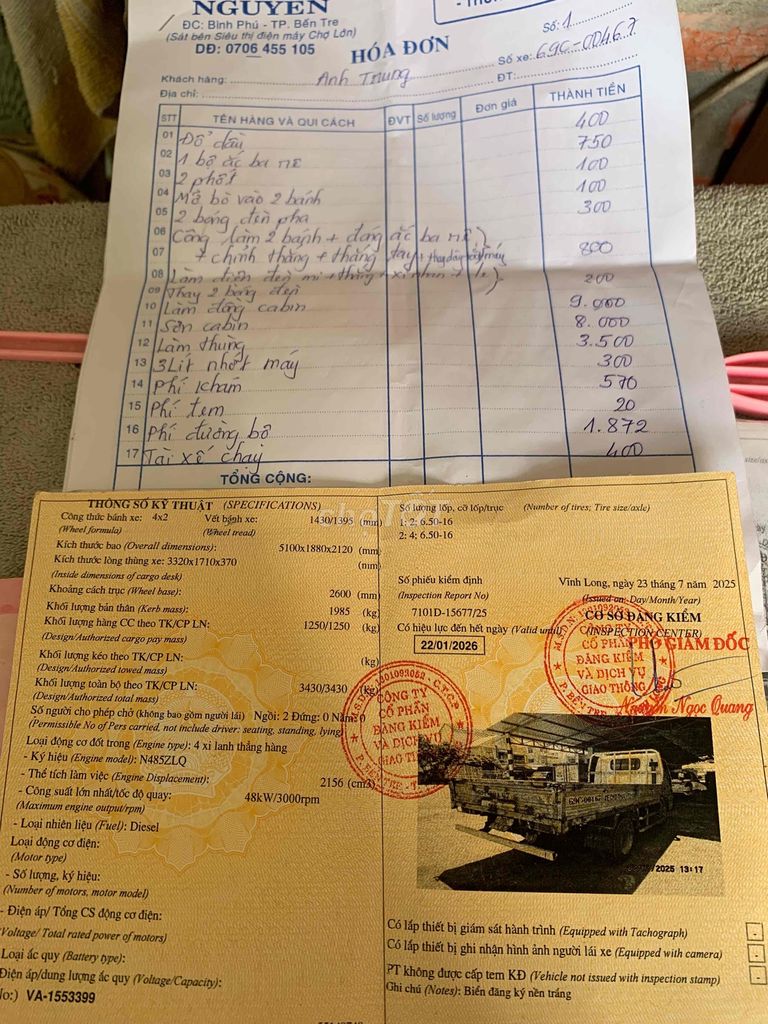 NGUYỄN
ĐC: Bình Phú - TP. Bến Tre
(Sát bên Siêu thị điện máy Chợ Lớn)
DĐ: 0706 455 105
HÓA ĐƠN
Số: 1
Số xe: 69C-00467
Khách hàng: Anh Trung
ĐT:
Địa chỉ:
STT TÊN HÀNG VÀ QUI CÁCH ĐVT Số lượng Đơn giá THÀNH TIỀN
01 Đổ dầu 400
02 1 bộ ắc ba nê 750
03 2 phốt 100
04 Mỡ bò vào 2 bánh 100
05 2 bóng đèn pha 300
06 Công làm 2 bánh + đóng ắc ba nê
07 + chỉnh thắng + thắng tay + thay dây 800
08 Làm điện đèn mi + thắng + xi nhan 200
09 Thay 2 bóng đèn
10 Làm đồng cabin 9.000
11 Sơn cabin 8.000
12 Làm thùng 3.500
13 3 Lít nhớt máy 300
14 Phí khám 570
15 Phí tem 20
16 Phí đường bộ 1.872
17 Tài xế chạy 400
TỔNG CỘNG:
chợTỐT
THÔNG SỐ KỸ THUẬT (SPECIFICATIONS)
Công thức bánh xe: 4x2 Vết bánh xe: 1430/1395 (mm)
(Wheel formula) (Wheel tread)
Kích thước bao (Overall dimensions): 5100x1880x2120 (mm)
Kích thước lòng thùng xe: 3320x1710x370 (mm)
(Inside dimensions of cargo desk)
Khoảng cách trục (Wheel base): 2600 (mm)
Khối lượng bản thân (Kerb mass): 1985 (kg)
Khối lượng hàng CC theo TK/CP LN: 1250/1250 (kg)
(Design/Authorized cargo pay mass)
Khối lượng kéo theo TK/CP LN: (kg)
(Design/Authorized towed mass)
Khối lượng toàn bộ theo TK/CP LN: 3430/3430 (kg)
(Design/Authorized total mass)
Số người cho phép chở (không bao gồm người lái) Ngồi: 2 Đứng: 0 Nằm: 0
(Permissible No of Pers carried, not include driver: seating, standing, lying)
Loại động cơ đốt trong (Engine type): 4 xi lanh thẳng hàng
- Ký hiệu (Engine model): N485ZLQ
- Thể tích làm việc (Engine Displacement): 2156 (cm3)
- Công suất lớn nhất/tốc độ quay: 48kW/3000rpm
(Maximum engine output/rpm)
- Loại nhiên liệu (Fuel): Diesel
Loại động cơ điện:
(Motor type)
- Số lượng, ký hiệu:
(Number of motors, motor model)
- Điện áp/ Tổng CS động cơ điện:
Voltage/ Total rated power of motors)
Loại ắc quy (Battery type):
Điện áp/dung lượng ắc quy (Voltage/Capacity):
No:) VA-1553399
Số lượng lốp, cỡ lốp/trục (Number of tires; Tire size/axle)
1; 2; 6.50-16
2: 4; 6.50-16
Số phiếu kiểm định
(Inspection Report No)
7101D-15677/25
Có hiệu lực đến hết ngày (Valid until)
22/01/2026
Vĩnh Long, ngày 23 tháng 7 năm 2025
(Issued on: Day/Month/Year)
CƠ SỞ ĐĂNG KIỂM
(INSPECTION CENTER)
PHÓ GIÁM ĐỐC
CÔNG TY
CỔ PHẦN
ĐĂNG KIỂM
VÀ DỊCH VỤ
GIAO THÔNG
Nguyễn Ngọc Quang
M.S.D.N: 1301093052 - C.T.C.P
CÔNG TY
CỔ PHẦN
ĐĂNG KIỂM
VÀ DỊCH VỤ
GIAO THÔNG
P. BẾN TRE
2025 13:17
Có lắp thiết bị giám sát hành trình (Equipped with Tachograph)
Có lắp thiết bị ghi nhận hình ảnh người lái xe (Equipped with camera)
PT không được cấp tem KĐ (Vehicle not issued with inspection stamp)
Ghi chú (Notes): Biển đăng ký nền trắng